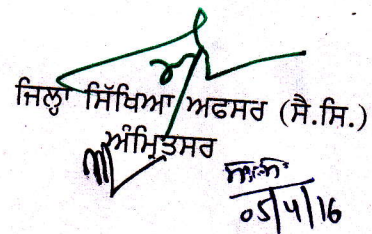 ਜਿਲ੍ਹਾ ਸਿੱਖਿਆ ਅਫਸਰ (ਸੈ.ਸਿ.)
ਅੰਮ੍ਰਿਤਸਰ
05/4/16